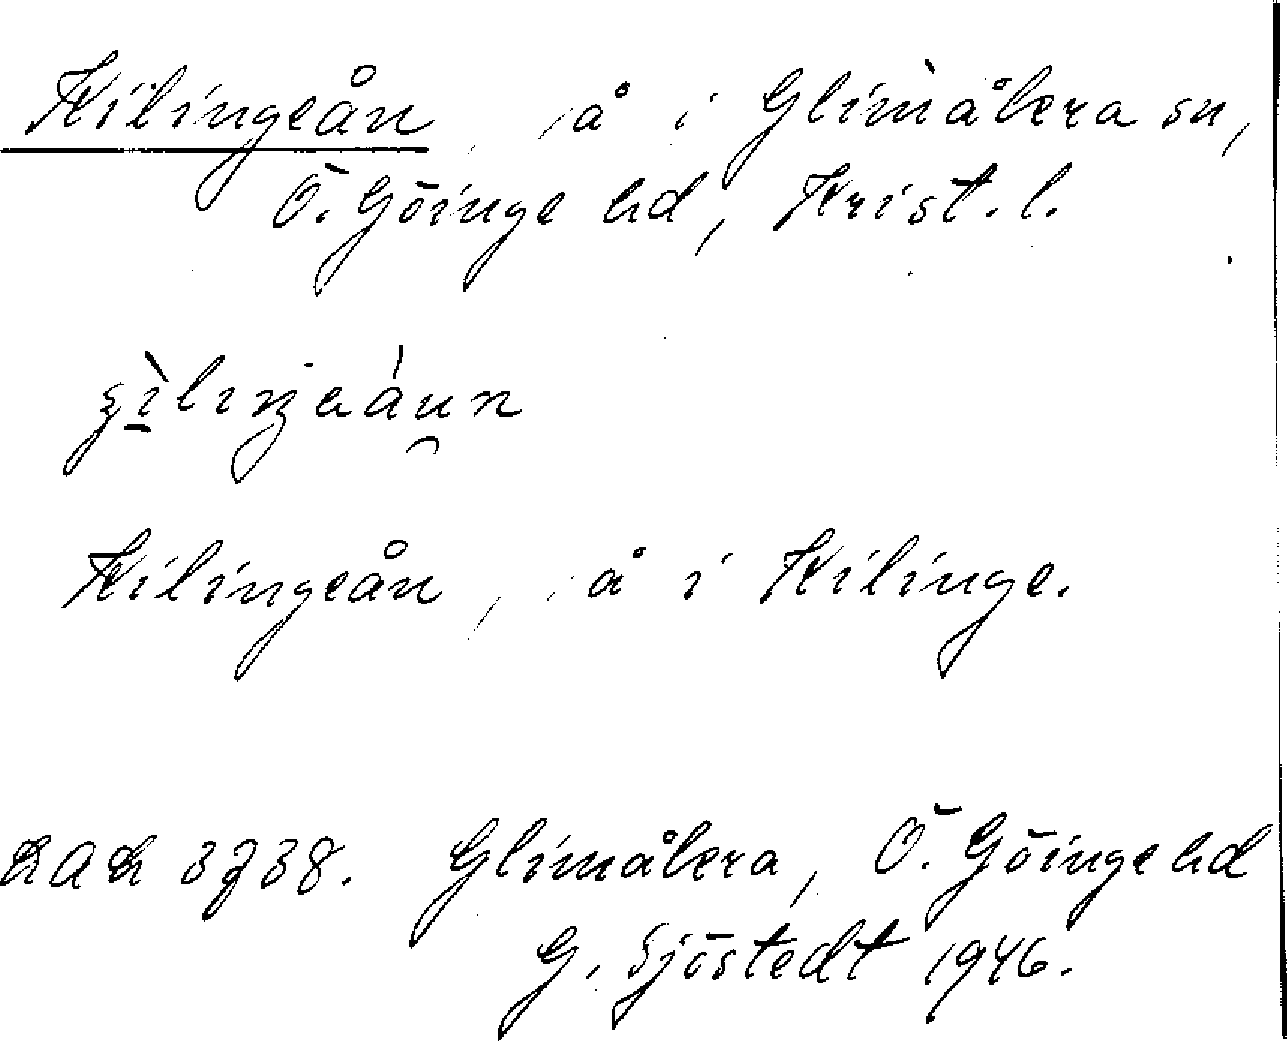 Kilingeån, å i Glimåkra sn,
Ö. Göinge hd, Krist. l.
Kilingeån, å i Kilinge.
3738. Glimåkra, Ö. Göinge hd
G. Sjöstedt 1946.